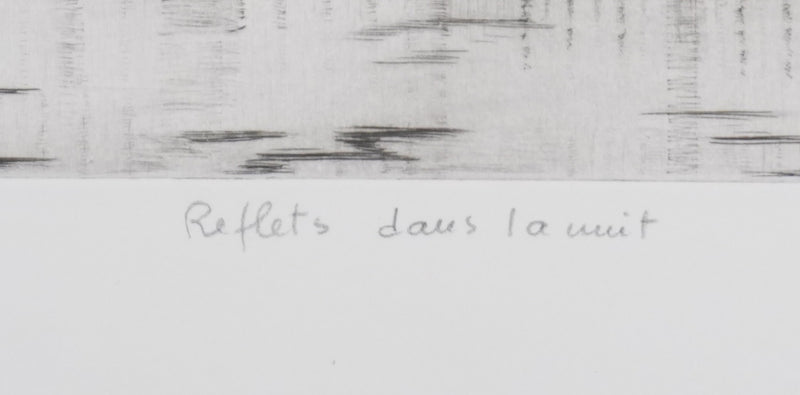 Reflets dans la nuit